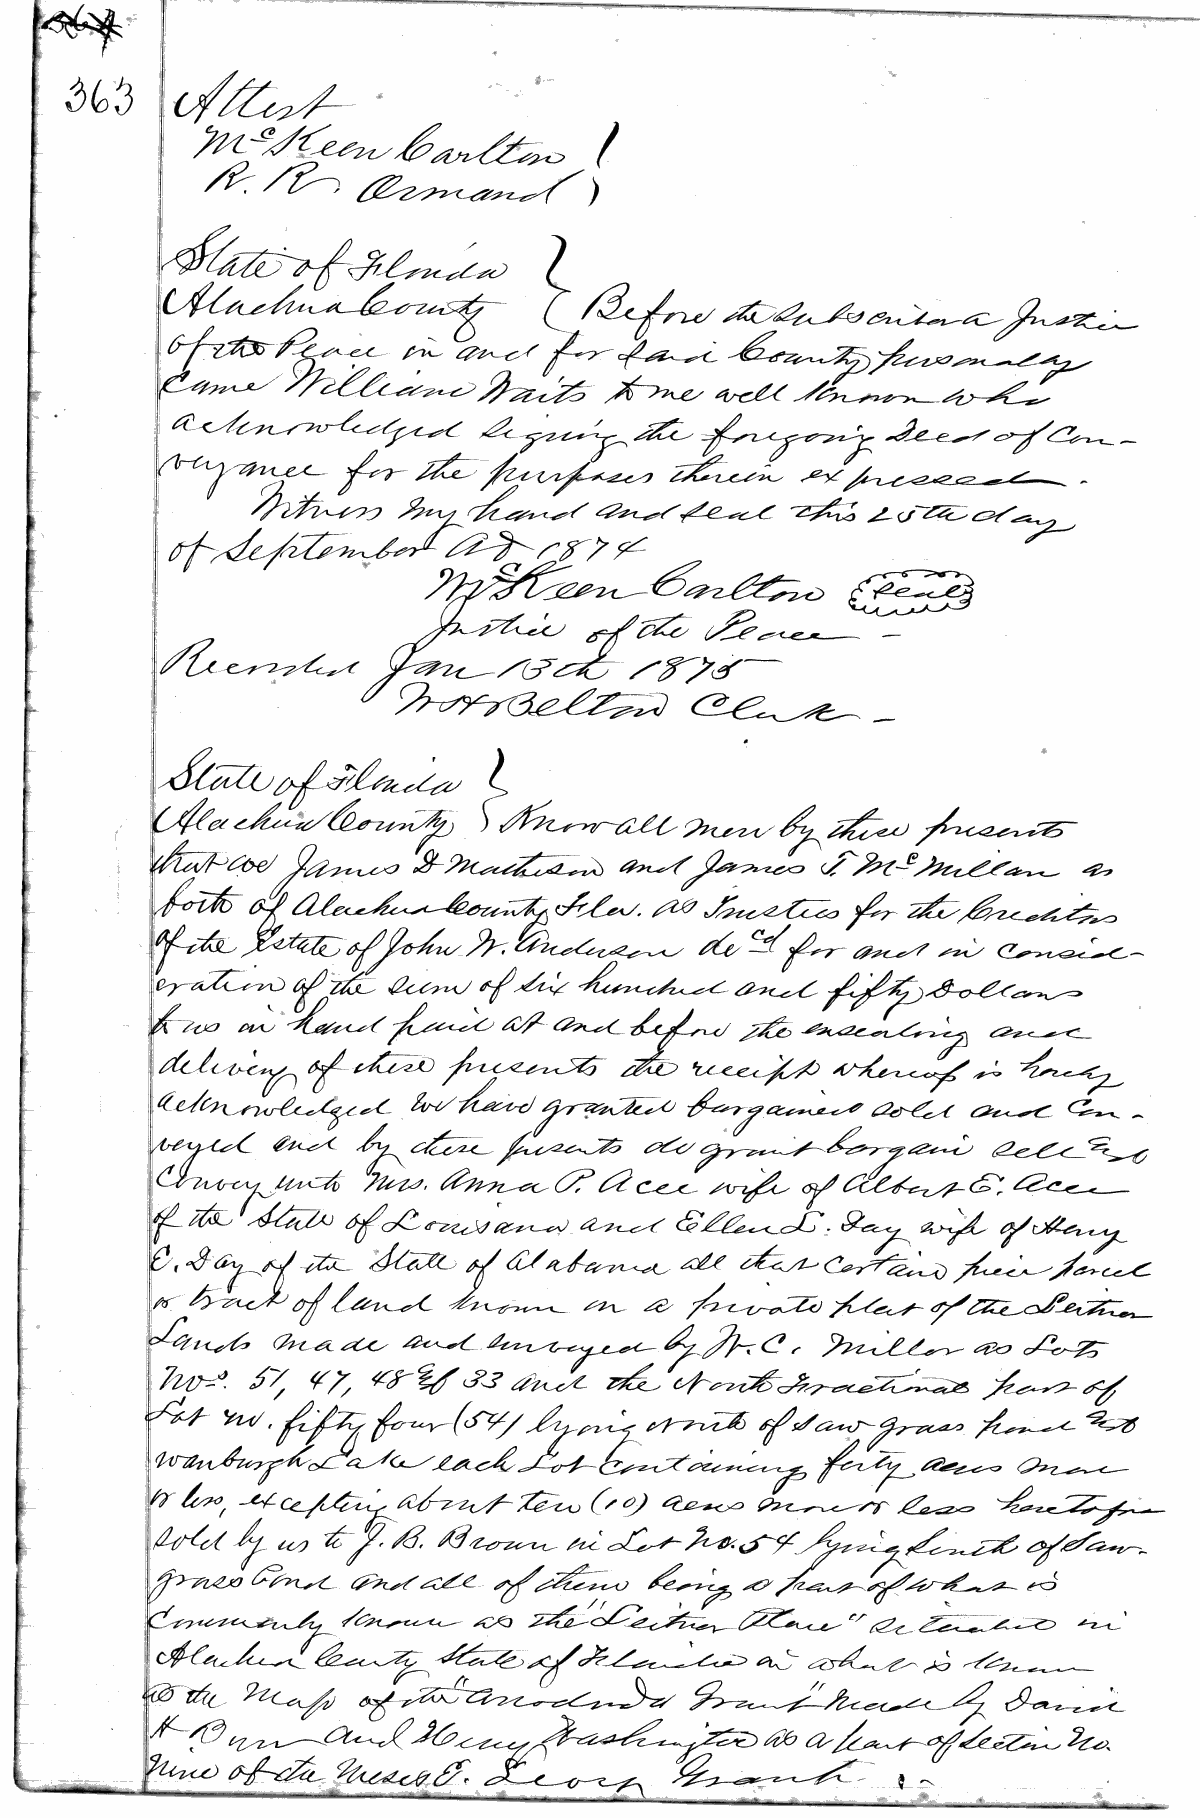 363
Attest
McKeen Carlton
R. R. Ormand
State of Florida
Alachua County Before the subscriber a Justice
of the Peace in and for said County personally
came William Waits to me well known who
acknowledged signing the foregoing Deed of Con-
veyance for the purposes therein expressed.
Witness my hand and seal this 25th day
of September AD 1874
McKeen Carlton Seal
Justice of the Peace
Recorded Jan 13th 1875
W H Belton Clerk
State of Florida
Alachua County Know all men by these presents
that we James D Matheson and James T. McMillan as
both of Alachua County Fla. as Trustees for the Creditors
of the Estate of John W. Anderson decd for and in consid-
eration of the sum of six hundred and fifty Dollars
to us in hand paid at and before the ensealing and
delivery of these presents the receipt whereof is hereby
acknowledged we have granted bargained sold and con-
veyed and by these presents do grant bargain sell and
convey unto Mrs. Anna P. Acee wife of Albert E. Acee
of the State of Louisana and Ellen L. Day wife of Henry
C. Day of the State of Alabama all that certain piece parcel
or tract of land known on a private plat of the Leitner
Lands made and surveyed by W. C. Miller as Lots
Nos. 51, 47, 48 33 and the North Fractional part of
Lot No. fifty four (54) lying North of Saw grass pond
Lake each Lot containing forty acres more
or less, excepting about ten (10) acres more or less heretofore
sold by us to J. B. Brown in Lot No. 54 lying South of Saw-
grass Pond and all of them being a part of what is
commonly known as the "Leitner Place" situated in
Alachua County State of Florida in what is known
as the Map of the "Arredondo Grant" made by David
H Burr and Henry Washington as a part of Section No.
Nine of the Grant.